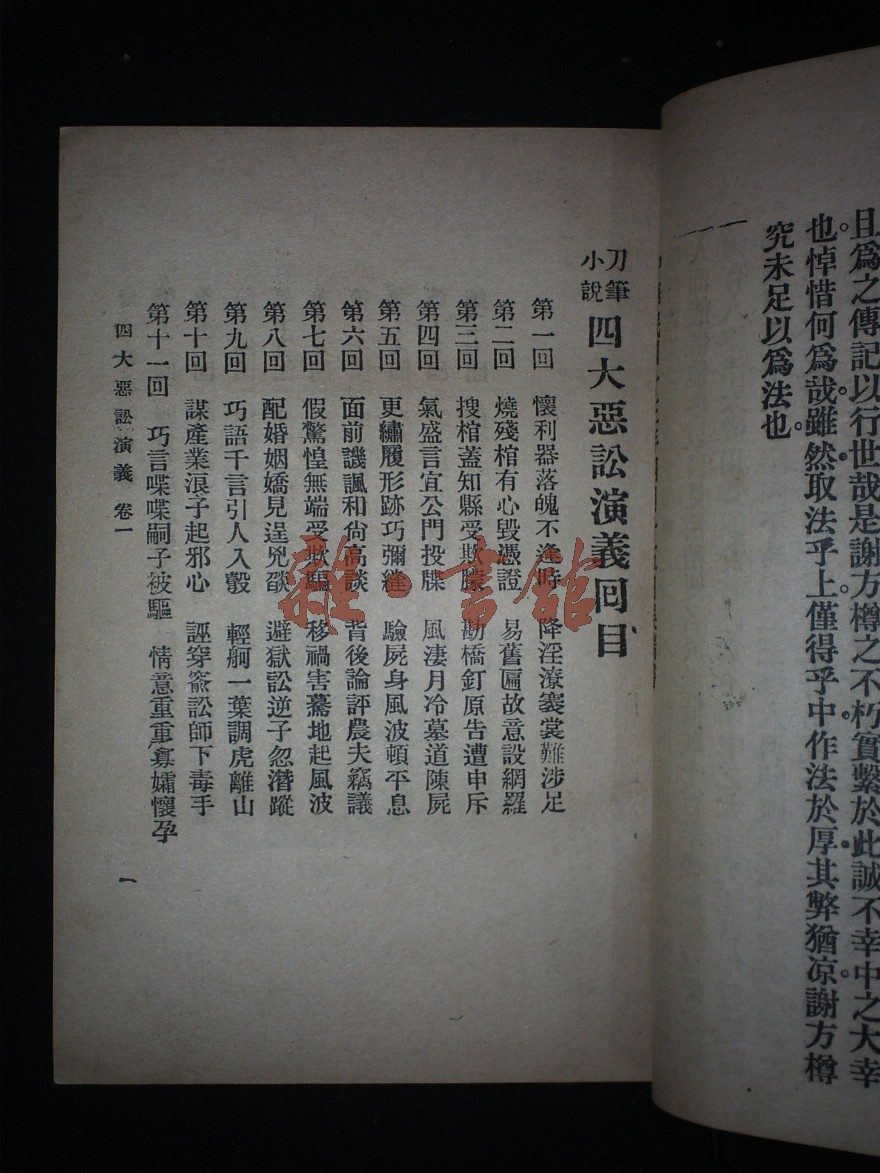 且爲之傳記以行世哉是謝方樽之不朽實繫於此誠不幸中之大幸
也。悼惜何爲哉。雖然。取法乎上。僅得乎中。作法於厚。其弊猶凉。謝方樽
究未足以爲法也。
刀筆小說 四大惡訟演義回目
第一回 懷利器落魄不逢時 降淫潦褰裳難涉足
第二回 燒殘棺有心毀憑證 易舊匾故意設網羅
第三回 搜棺蓋知縣受欺朦 勘橋釘原告遭申斥
第四回 氣盛言宜公門投牒 風淒月冷墓道陳屍
第五回 更繡履形跡巧彌縫 驗屍身風波頓平息
第六回 面前譏諷和尙高談 背後論評農夫竊議
第七回 假驚惶無端受欺騙 移禍害驀地起風波
第八回 配婚姻嬌見逞兇燄 避獄訟逆子忽潛蹤
第九回 巧語千言引人入彀 輕舸一葉調虎離山
第十回 謀產業浪子起邪心 誣穿窬訟師下毒手
第十一回 巧言喋喋嗣子被驅 情意重重寡孀懷孕
四大惡訟演義 卷一
一
雜·書館